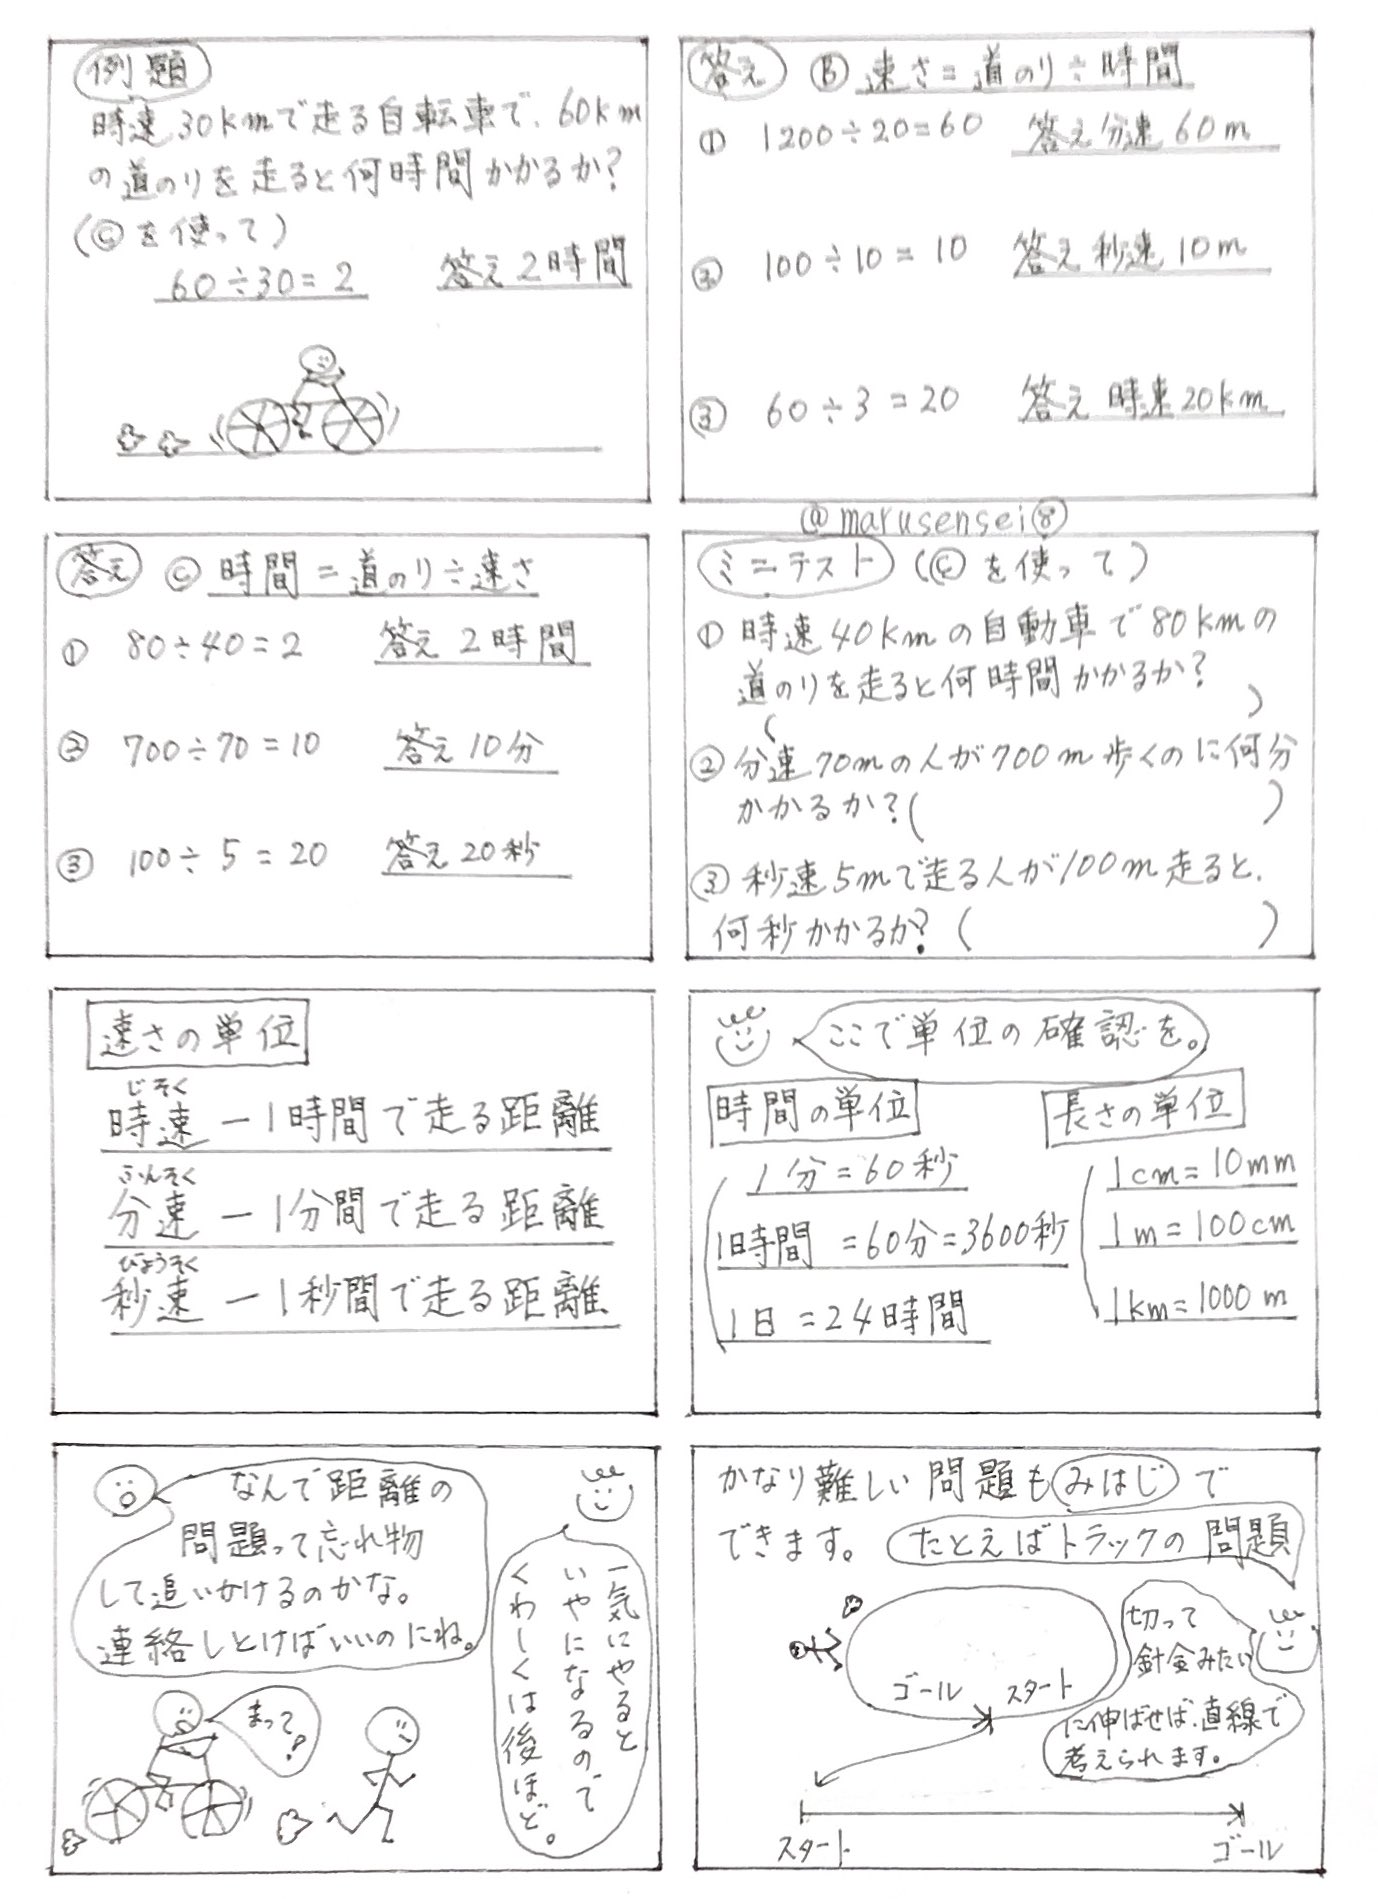 例題
時速30kmで走る自転車で、60km
の道のりを走ると何時間かかるか?
(Ⓒを使って)
60÷30=2 答え2時間
答え Ⓑ 速さ=道のり÷時間
① 1200÷20=60 答え分速60m
② 100÷10=10 答え秒速10m
③ 60÷3=20 答え時速20km
@marusensei⑧
答え Ⓒ 時間=道のり÷速さ
① 80÷40=2 答え2時間
② 700÷70=10 答え10分
③ 100÷5=20 答え20秒
ミニテスト (Ⓒを使って)
① 時速40kmの自動車で80kmの
道のりを走ると何時間かかるか?
( )
② 分速70mの人が700m歩くのに何分
かかるか?( )
③ 秒速5mで走る人が100m走ると、
何秒かかるか?( )
速さの単位
じそく
時速ー1時間で走る距離
ふんそく
分速ー1分間で走る距離
びょうそく
秒速ー1秒間で走る距離
ここで単位の確認を。
時間の単位
1分=60秒
1時間=60分=3600秒
1日=24時間
長さの単位
1cm=10mm
1m=100cm
1km=1000m
なんで距離の
問題って忘れ物
して追いかけるのかな。
連絡しとけばいいのにね。
一気にやると
いやになるので
くわしくは後ほど。
まって?
かなり難しい問題もみはじで
できます。たとえばトラックの問題
切って
針金みたい
に伸ばせば、直線で
考えられます。
ゴール スタート
スタート ゴール